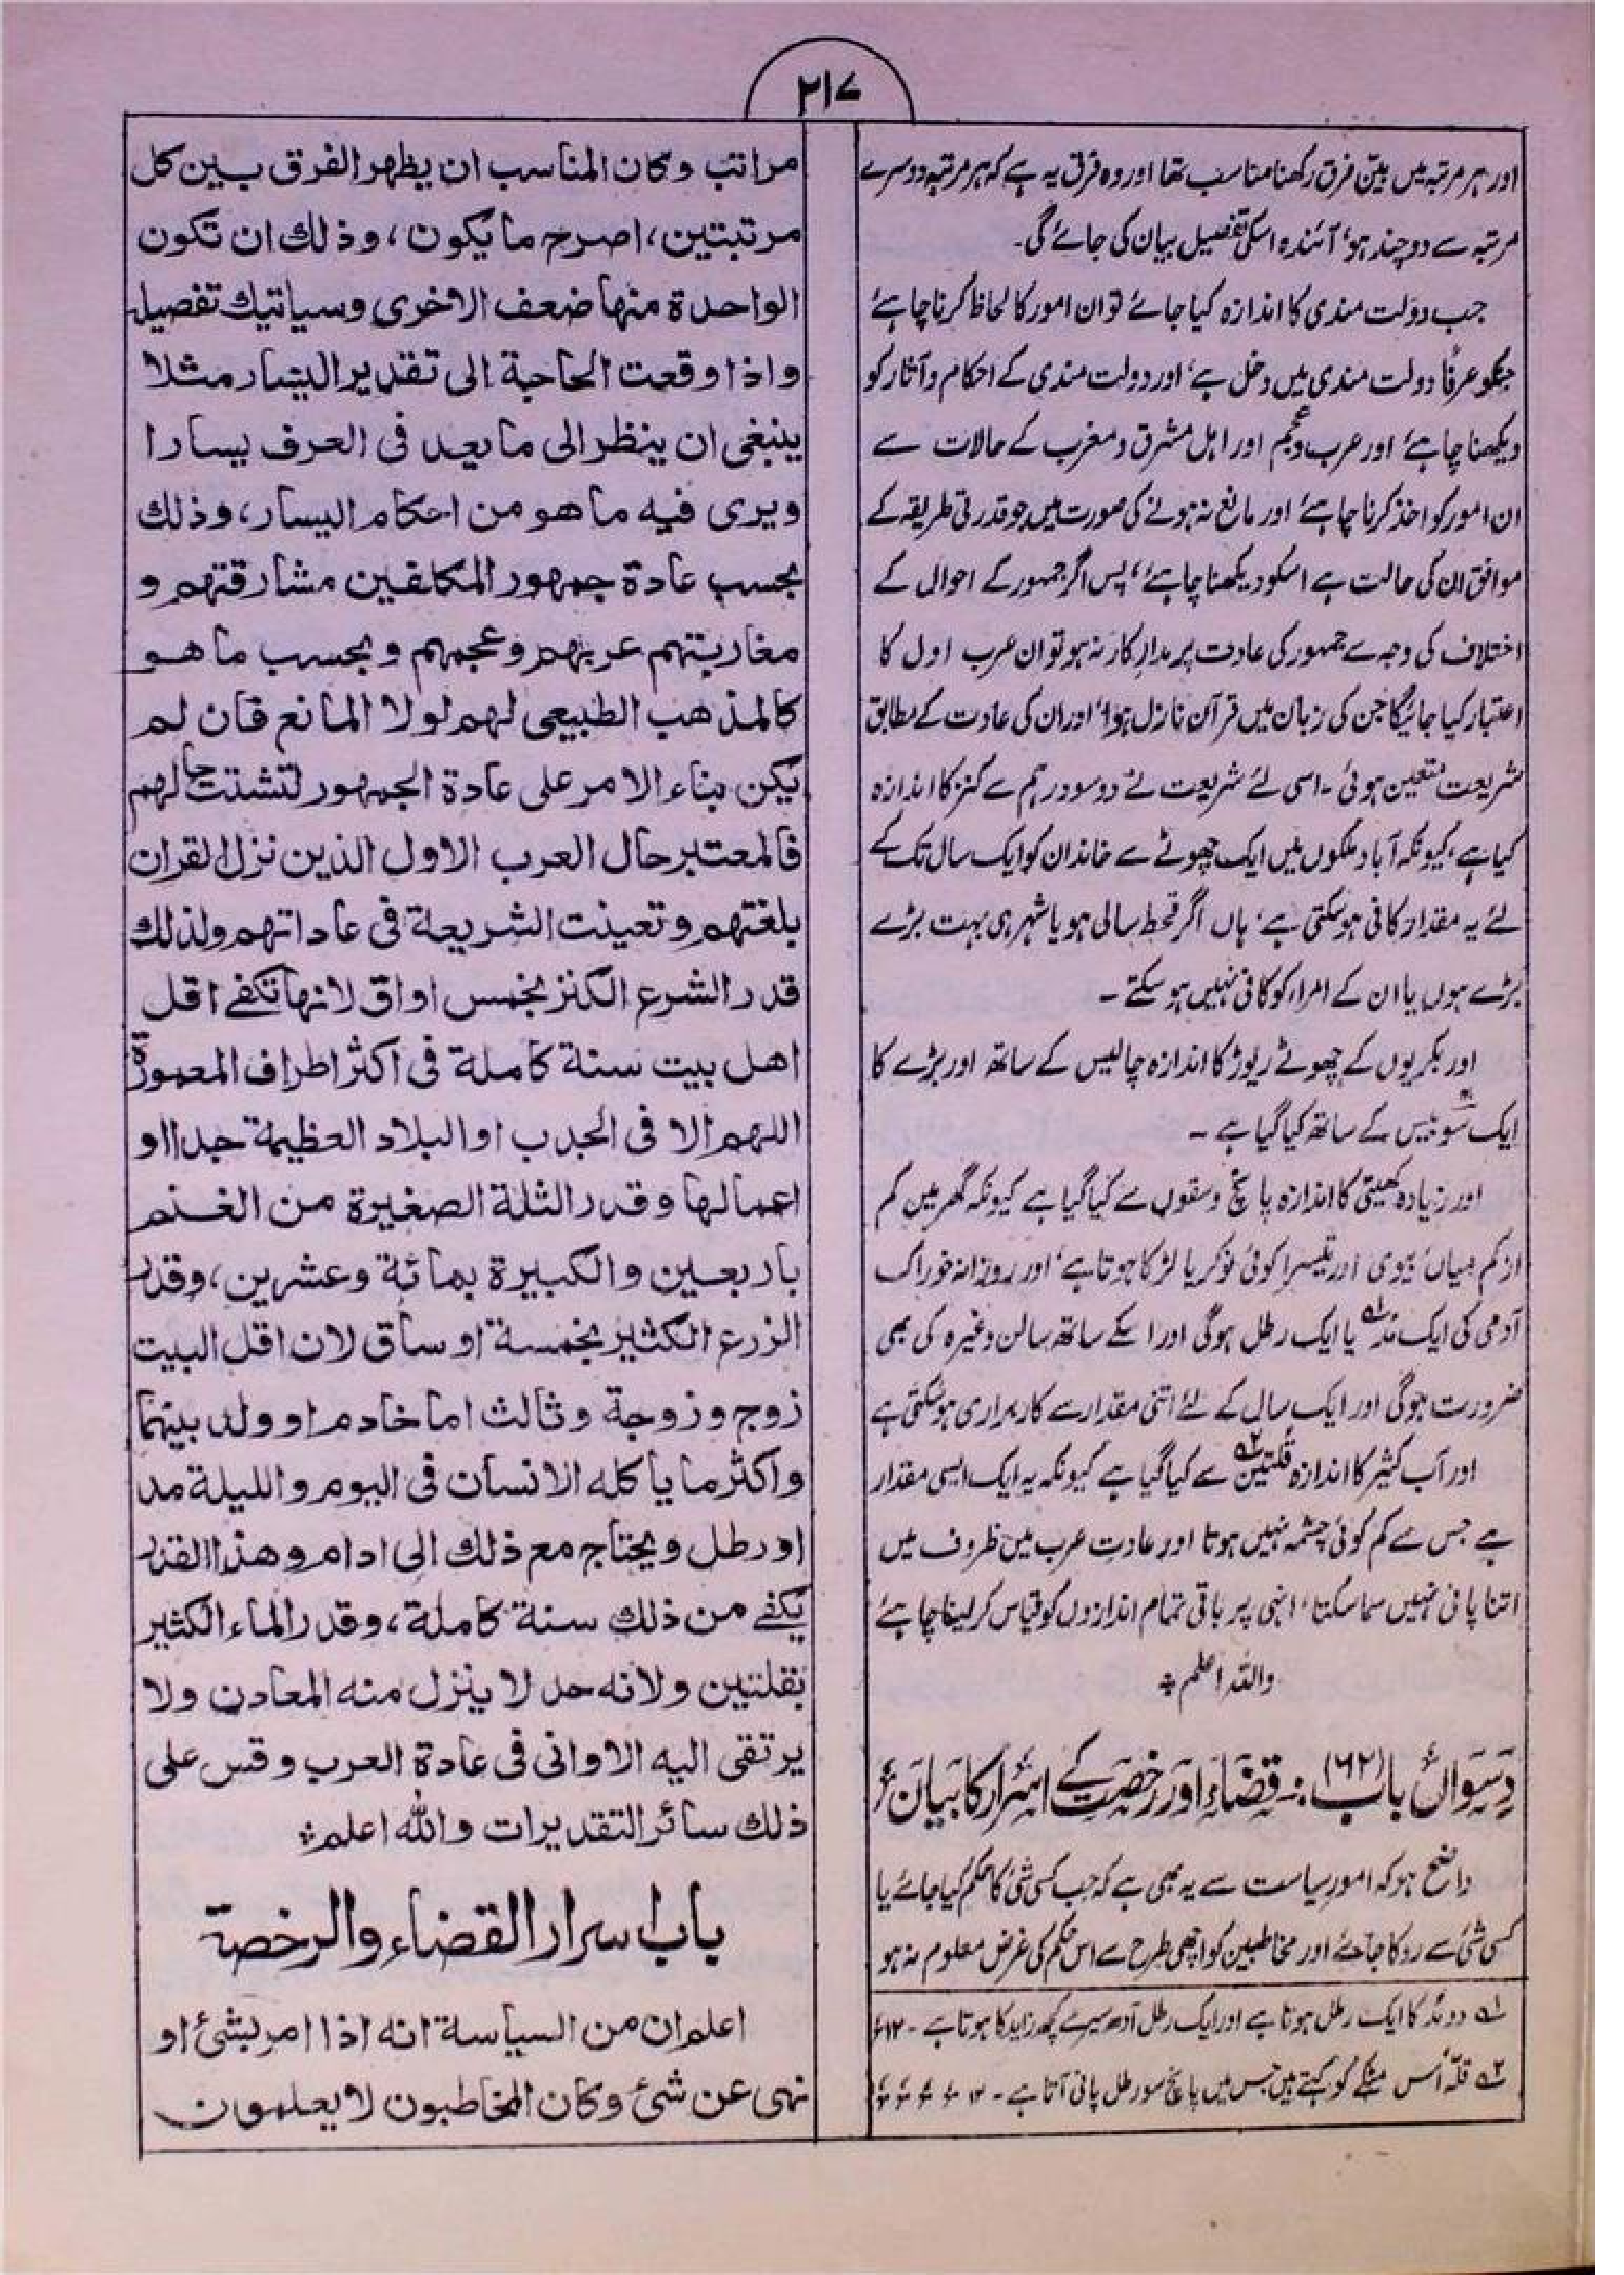 ۲۱۷
اور ہر مرتبہ میں بیّن فرق رکھنا مناسب تھا اور وہ فرق یہ ہے کہ ہر مرتبہ دوسرے
مرتبہ سے دو چند ہو، آئندہ اسکی تفصیل بیان کی جائے گی۔
جب دولت مندی کا اندازہ کیا جائے تو ان امور کا لحاظ کرنا چاہئے
جنکو عرفًا دولت مندی میں دخل ہے، اور دولت مندی کے احکام و آثار کو
دیکھنا چاہئے اور عرب و عجم اور اہل مشرق و مغرب کے حالات سے
ان امور کو اخذ کرنا چاہئے اور مانع نہ ہونے کی صورت میں جو قدرتی طریقہ کے
موافق ان کی حالت ہے اسکو دیکھنا چاہئے، پس اگر جمہور کے احوال کے
اختلاف کی وجہ سے جمہور کی عادت پر مدار کار نہ ہو تو ان عرب اول کا
اعتبار کیا جائیگا جن کی زبان میں قرآن نازل ہوا، اور ان کی عادت کے مطابق
شریعت متعین ہوئی۔ اسی لئے شریعت نے دو سو درہم سے کنز کا اندازہ
کیا ہے، کیونکہ آباد ملکوں میں ایک چھوٹے سے خاندان کو ایک سال تک کے
لئے یہ مقدار کافی ہو سکتی ہے، ہاں اگر قحط سالی ہو یا شہر ہی بہت بڑے
بڑے ہوں یا ان کے امراء کو کافی نہیں ہو سکتے۔
اور بکریوں کے چھوٹے ریوڑ کا اندازہ چالیس کے ساتھ اور بڑے کا
ایک سو بیس کے ساتھ کیا گیا ہے۔
اور زیادہ کھیتی کا اندازہ پانچ وسقوں سے کیا گیا ہے کیونکہ گھر میں کم
از کم میاں، بیوی اور تیسرا کوئی نوکر یا لڑکا ہوتا ہے، اور روزانہ خوراک
آدمی کی ایک مد ؎۱ یا ایک رطل ہوگی اور اسکے ساتھ سالن وغیرہ کی بھی
ضرورت ہوگی اور ایک سال کے لئے اتنی مقدار سے کار براری ہو سکتی ہے
اور آب کثیر کا اندازہ قلتین ؎۲ سے کیا گیا ہے کیونکہ یہ ایک ایسی مقدار
ہے جس سے کم کوئی چشمہ نہیں ہوتا اور عادت عرب میں ظروف میں
اتنا پانی نہیں سما سکتا، انہی پر باقی تمام اندازوں کو قیاس کر لینا چاہئے
واللہ اعلم ٭
دسواں باب (۶۲) :۔ قضاء اور رخصت کے اسرار کا بیان
واضح ہو کہ امور سیاست سے یہ بھی ہے کہ جب کسی شئ کا حکم کیا جائے یا
کسی شئ سے روکا جائے اور مخاطبین کو اچھی طرح سے اس حکم کی غرض معلوم نہ ہو
؎۱ دو مد کا ایک رطل ہوتا ہے اور ایک رطل آدھ سیر سے کچھ زاید کا ہوتا ہے۔ ۱۲
؎۲ قلّہ اُس مٹکے کو کہتے ہیں جس میں پانچ سو رطل پانی آتا ہے۔ ۱۲
مراتب وكان المناسب ان يظهر الفرق بين كل
مرتبتين، اصرح ما يكون، وذلك ان تكون
الواحدة منها ضعف الاخرى وسياتيك تفصيله
واذا وقعت الحاجة الى تقدير اليسار مثلا
ينبغى ان ينظر الى ما يعد فى العرف يسارا
ويرى فيه ما هو من احكام اليسار، وذلك
بحسب عادة جمهور المكلفين مشارقتهم و
مغاربتهم عربهم وعجمهم وبحسب ما هو
كالمذهب الطبيعى لهم لولا المانع فان لم
يكن بناء الامر على عادة الجمهور لتشتت حالهم
فالمعتبر حال العرب الاول الذين نزل القران
بلغتهم وتعينت الشريعة فى عاداتهم ولذلك
قدر الشرع الكنز بخمس اواق لانها تكفے اقل
اهل بيت سنة كاملة فى اكثر اطراف المعمورة
اللهم الا فى الجدب او البلاد العظيمة جدا او
اعمالها وقدر الثلة الصغيرة من الغنم
باربعين والكبيرة بمائة وعشرين، وقدر
الزرع الكثير بخمسة اوساق لان اقل البيت
زوج وزوجة وثالث اما خادم او ولد بينهما
واكثر ما ياكله الانسان فى اليوم والليلة مد
او رطل ويحتاج مع ذلك الى ادام وهذا القدر
يكفے من ذلك سنة كاملة، وقدر الماء الكثير
بقلتين ولانه حد لا ينزل منه المعادن ولا
يرتقى اليه الاوانى فى عادة العرب وقس على
ذلك سائر التقديرات والله اعلم ٭
باب اسرار القضاء والرخصة
اعلم ان من السياسة انه اذا امر بشئ او
نهى عن شئ وكان المخاطبون لا يعلمون